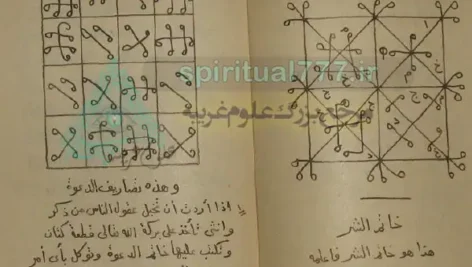 spiritual777.ir
مرجع بزرگ علوم غریبه
خاتم الشر
هذا هو خاتم الشر فاعلمه
وهذه تصاريف الدعوة
إذا أردت أن تخبل عقول الناس من ذكر
وانثى تأخذ على بركة الله تعالى قطعة كتان
وتكتب عليها خاتم الدعوة وتوكل بأى أمر